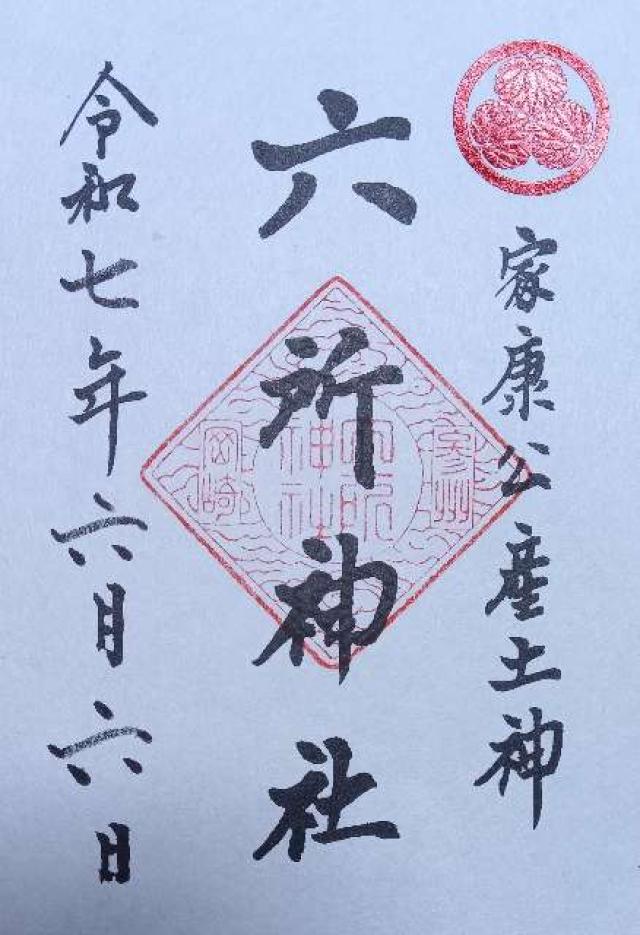 家康公産土神
六所神社
令和七年六月六日
参州
六所
神社
岡崎